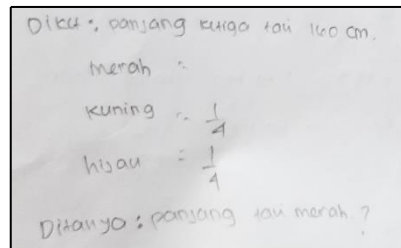 Diket : panjang ketiga tali 160 cm.
merah :
kuning : 1/4
hijau : 1/4
Ditanya : panjang tali merah ?